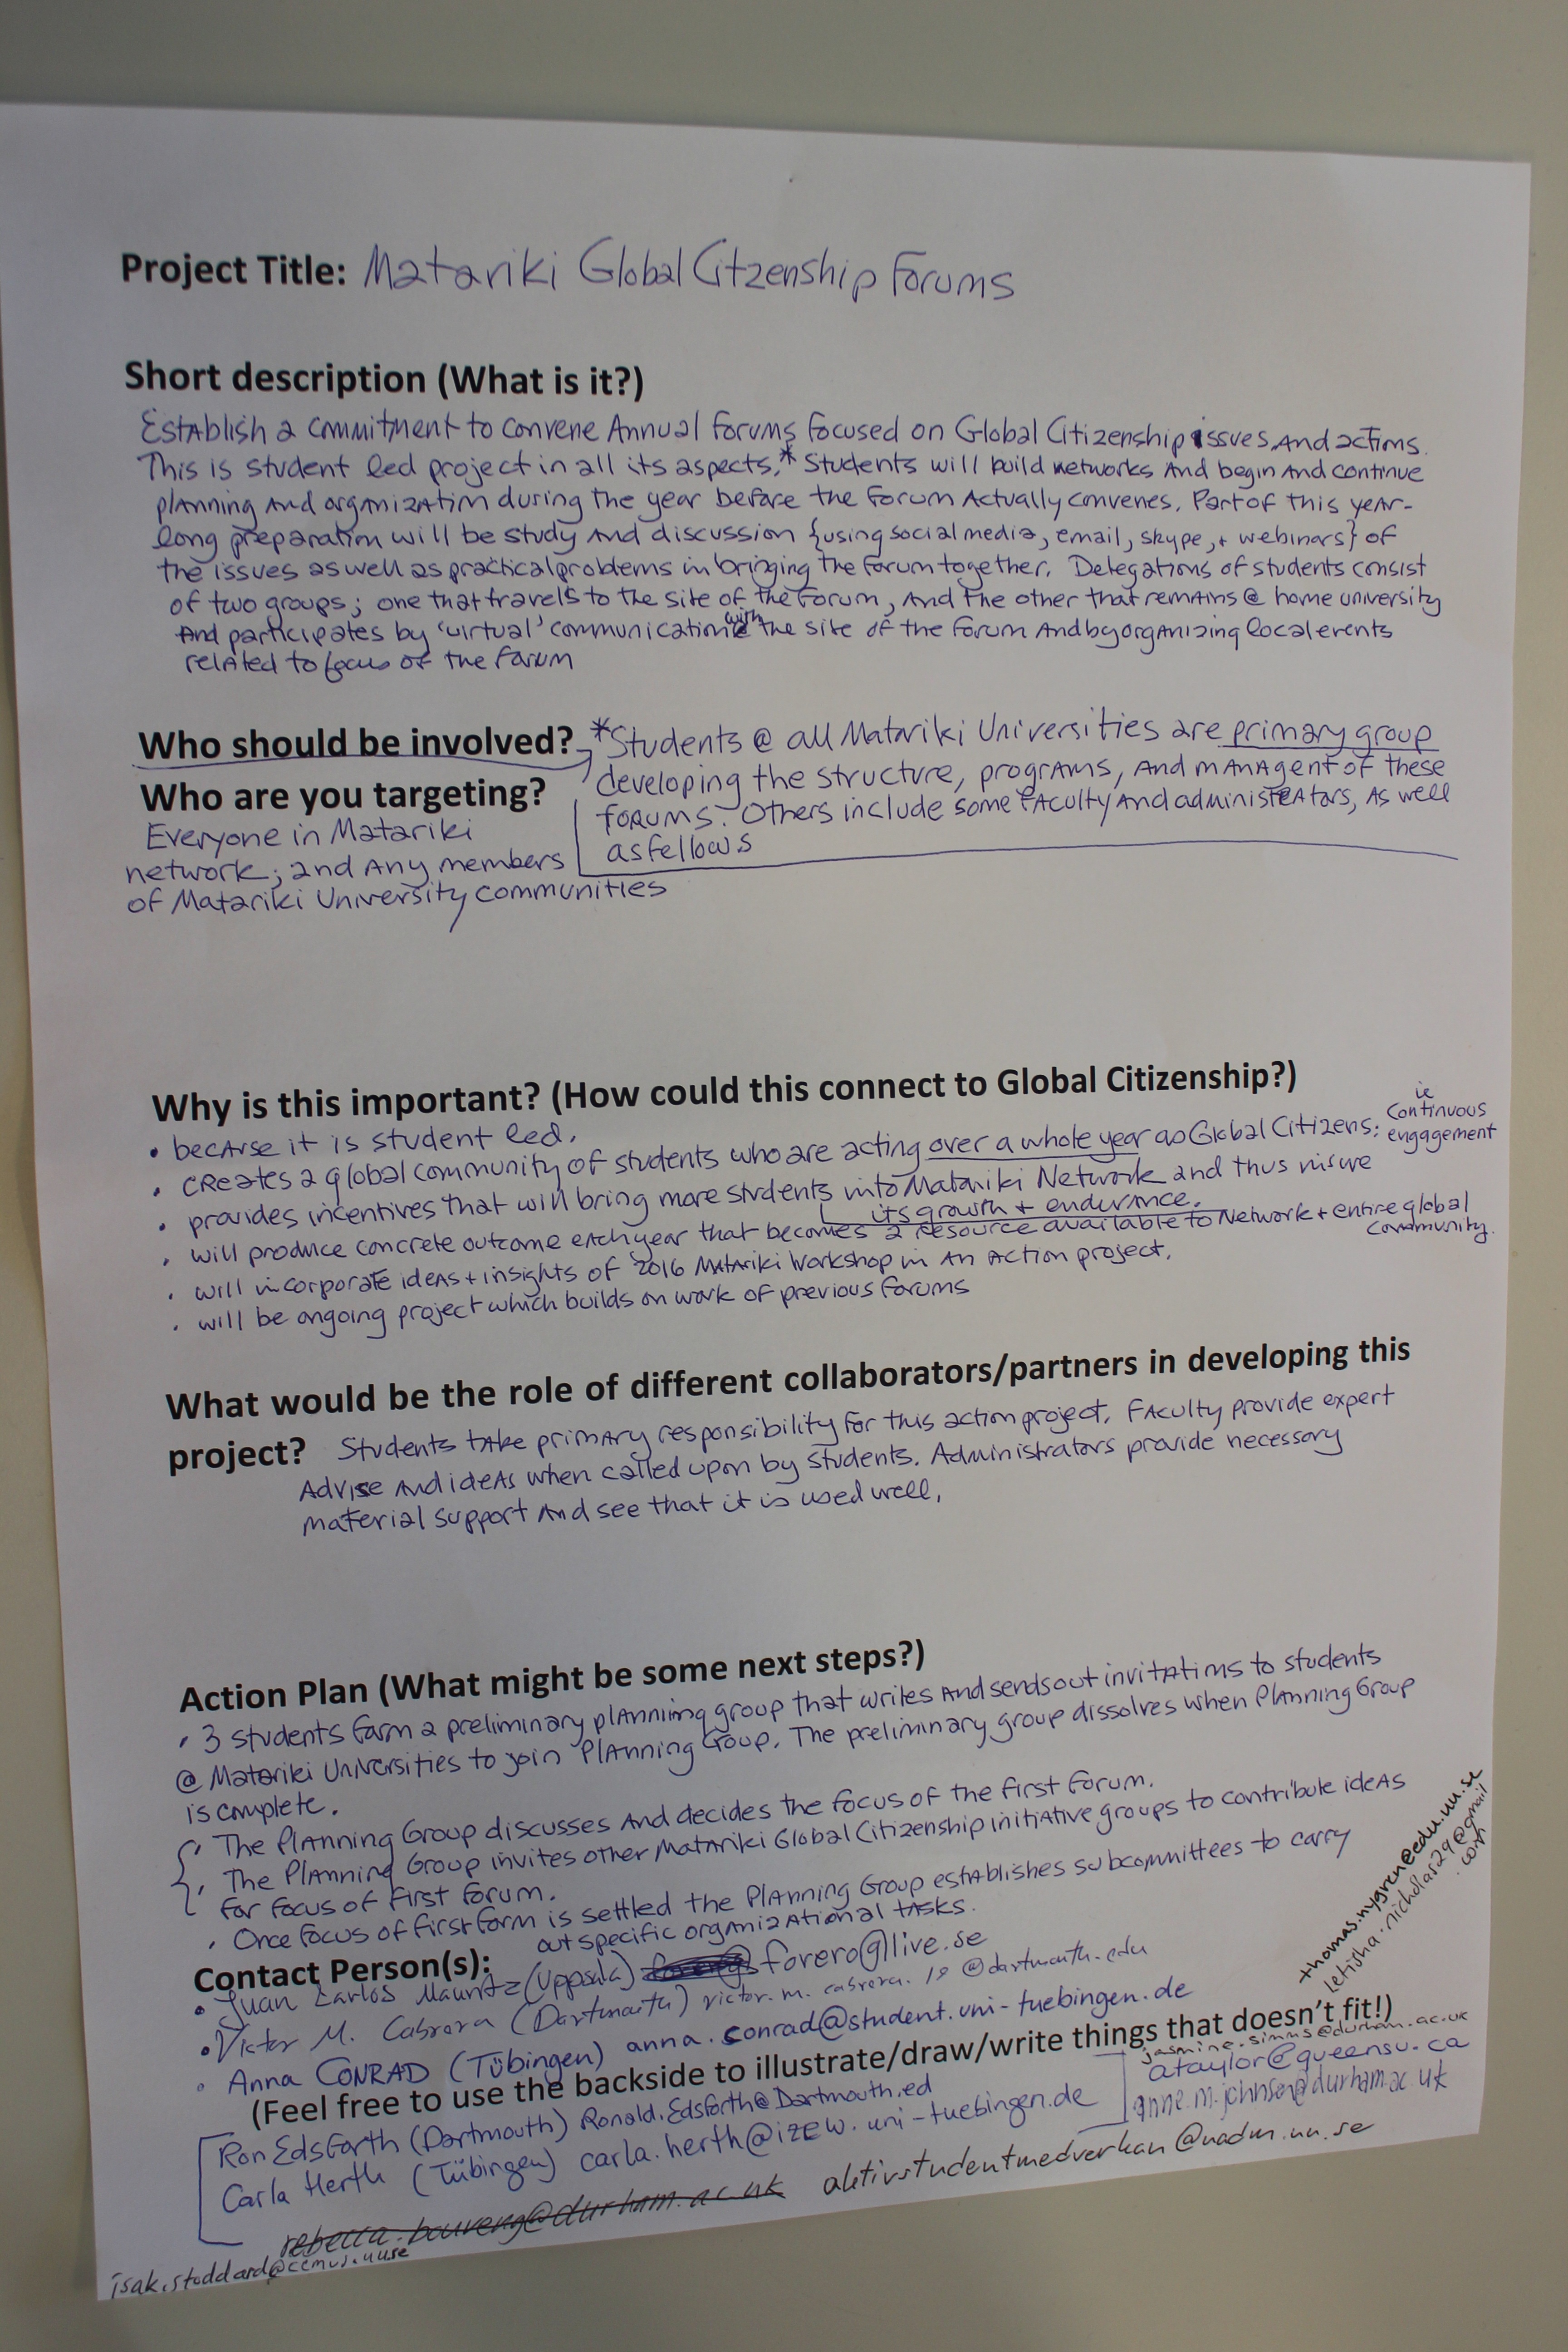 Project Title: Matariki Global Citzenship Forums
Short description (What is it?)
Establish a commitment to convene Annual forums focused on Global Citizenship issues and actions.
This is student led project in all its aspects.* Students will build networks and begin and continue
planning and organization during the year before the Forum actually convenes. Part of this year-
long preparation will be study and discussion {using social media, email, skype, + webinars} of
the issues as well as practical problems in bringing the forum together. Delegations of students consist
of two groups; one that travels to the site of the Forum, and the other that remains @ home university
and participates by 'virtual' communication with the site of the forum and by organizing local events
related to focus of the forum
Who should be involved?
*Students @ all Matariki Universities are primary group
developing the structure, programs, and managent of these
forums. Others include some faculty and administrators, as well
as fellows
Who are you targeting?
Everyone in Matariki
network; and any members
of Matariki University communities
Why is this important? (How could this connect to Global Citizenship?)
• becasse it is student led.
• creates a global community of students who are acting over a whole year as Global Citizens: ie continuous engagement
• provides incentives that will bring more students into Matariki Network and thus
its growth + endurance.
• will produce concrete outcome each year that becomes a resource available to Network + entire global community.
• will incorporate ideas + insights of 2016 Matariki Workshop in an action project.
• will be ongoing project which builds on work of previous forums
What would be the role of different collaborators/partners in developing this
project? Students take primary responsibility for this action project. Faculty provide expert
advise and ideas when called upon by students. Administrators provide necessary
material support and see that it is used well.
Action Plan (What might be some next steps?)
• 3 students form a preliminary planning group that writes and sends out invitations to students
@ Matariki Universities to join Planning Group. The preliminary group dissolves when Planning Group
is complete.
• The Planning Group discusses and decides the focus of the first forum.
• The Planning Group invites other Matariki Global Citizenship initiative groups to contribute ideas
for focus of first forum.
• Once focus of first form is settled the Planning Group establishes subcommittees to carry
out specific organizational tasks.
Contact Person(s):
• Juan Carlos (Uppsala) forero@live.se
• Victor M. Cabrera (Dartmouth) victor.m.cabrera.18@dartmouth.edu
• Anna CONRAD (Tübingen) anna.conrad@student.uni-tuebingen.de
thomas.nygren@edu.uu.se
letisha.nicholas29@gmail.com
(Feel free to use the backside to illustrate/draw/write things that doesn't fit!)
jasmine.simms@durham.ac.uk
ataylor@queensu.ca
anne.m.johnson@durham.ac.uk
Ron Edsforth (Dartmouth) Ronald.Edsforth@Dartmouth.ed
Carla Herth (Tübingen) carla.herth@izew.uni-tuebingen.de
rebecca.bouveng@durham.ac.uk aktivstudentmedverkan@uadm.uu.se
isak.stoddard@cemus.uu.se